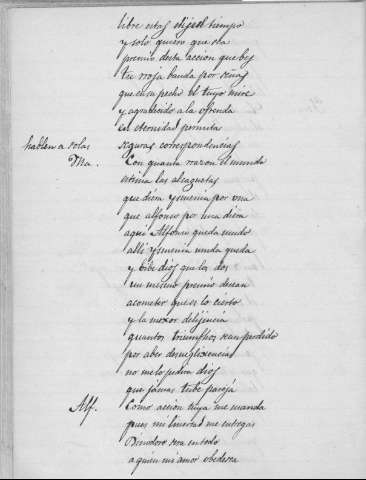 libre estas elixe el tiempo
y solo quiero que sea
premio desta accion que hoy
tu rroja banda por señas
que en su pecho el tuyo mire
y agradecido a la ofrenda
en eternidad permita
seguras correspondencias
hablen a solas
Ma. Con quanta rrazon el mundo
estima las alcaguetas
que diera ysmenia por una
que alfonso por una diera
aqui Alfonso queda mudo
alli ysmenia muda queda
y bibe dios que los dos
un mismo premio desean
acometer que es lo cierto
y la mexor dilijencia
quantos triumphos sean perdido
por aber desuiglixencias
no me lo pedira dios
que jamas tube pereja
Alf. Como accion tuya me manda
pues mi libertad me entregas
Dinodoro sera en todo
a quien mi amor obedesca